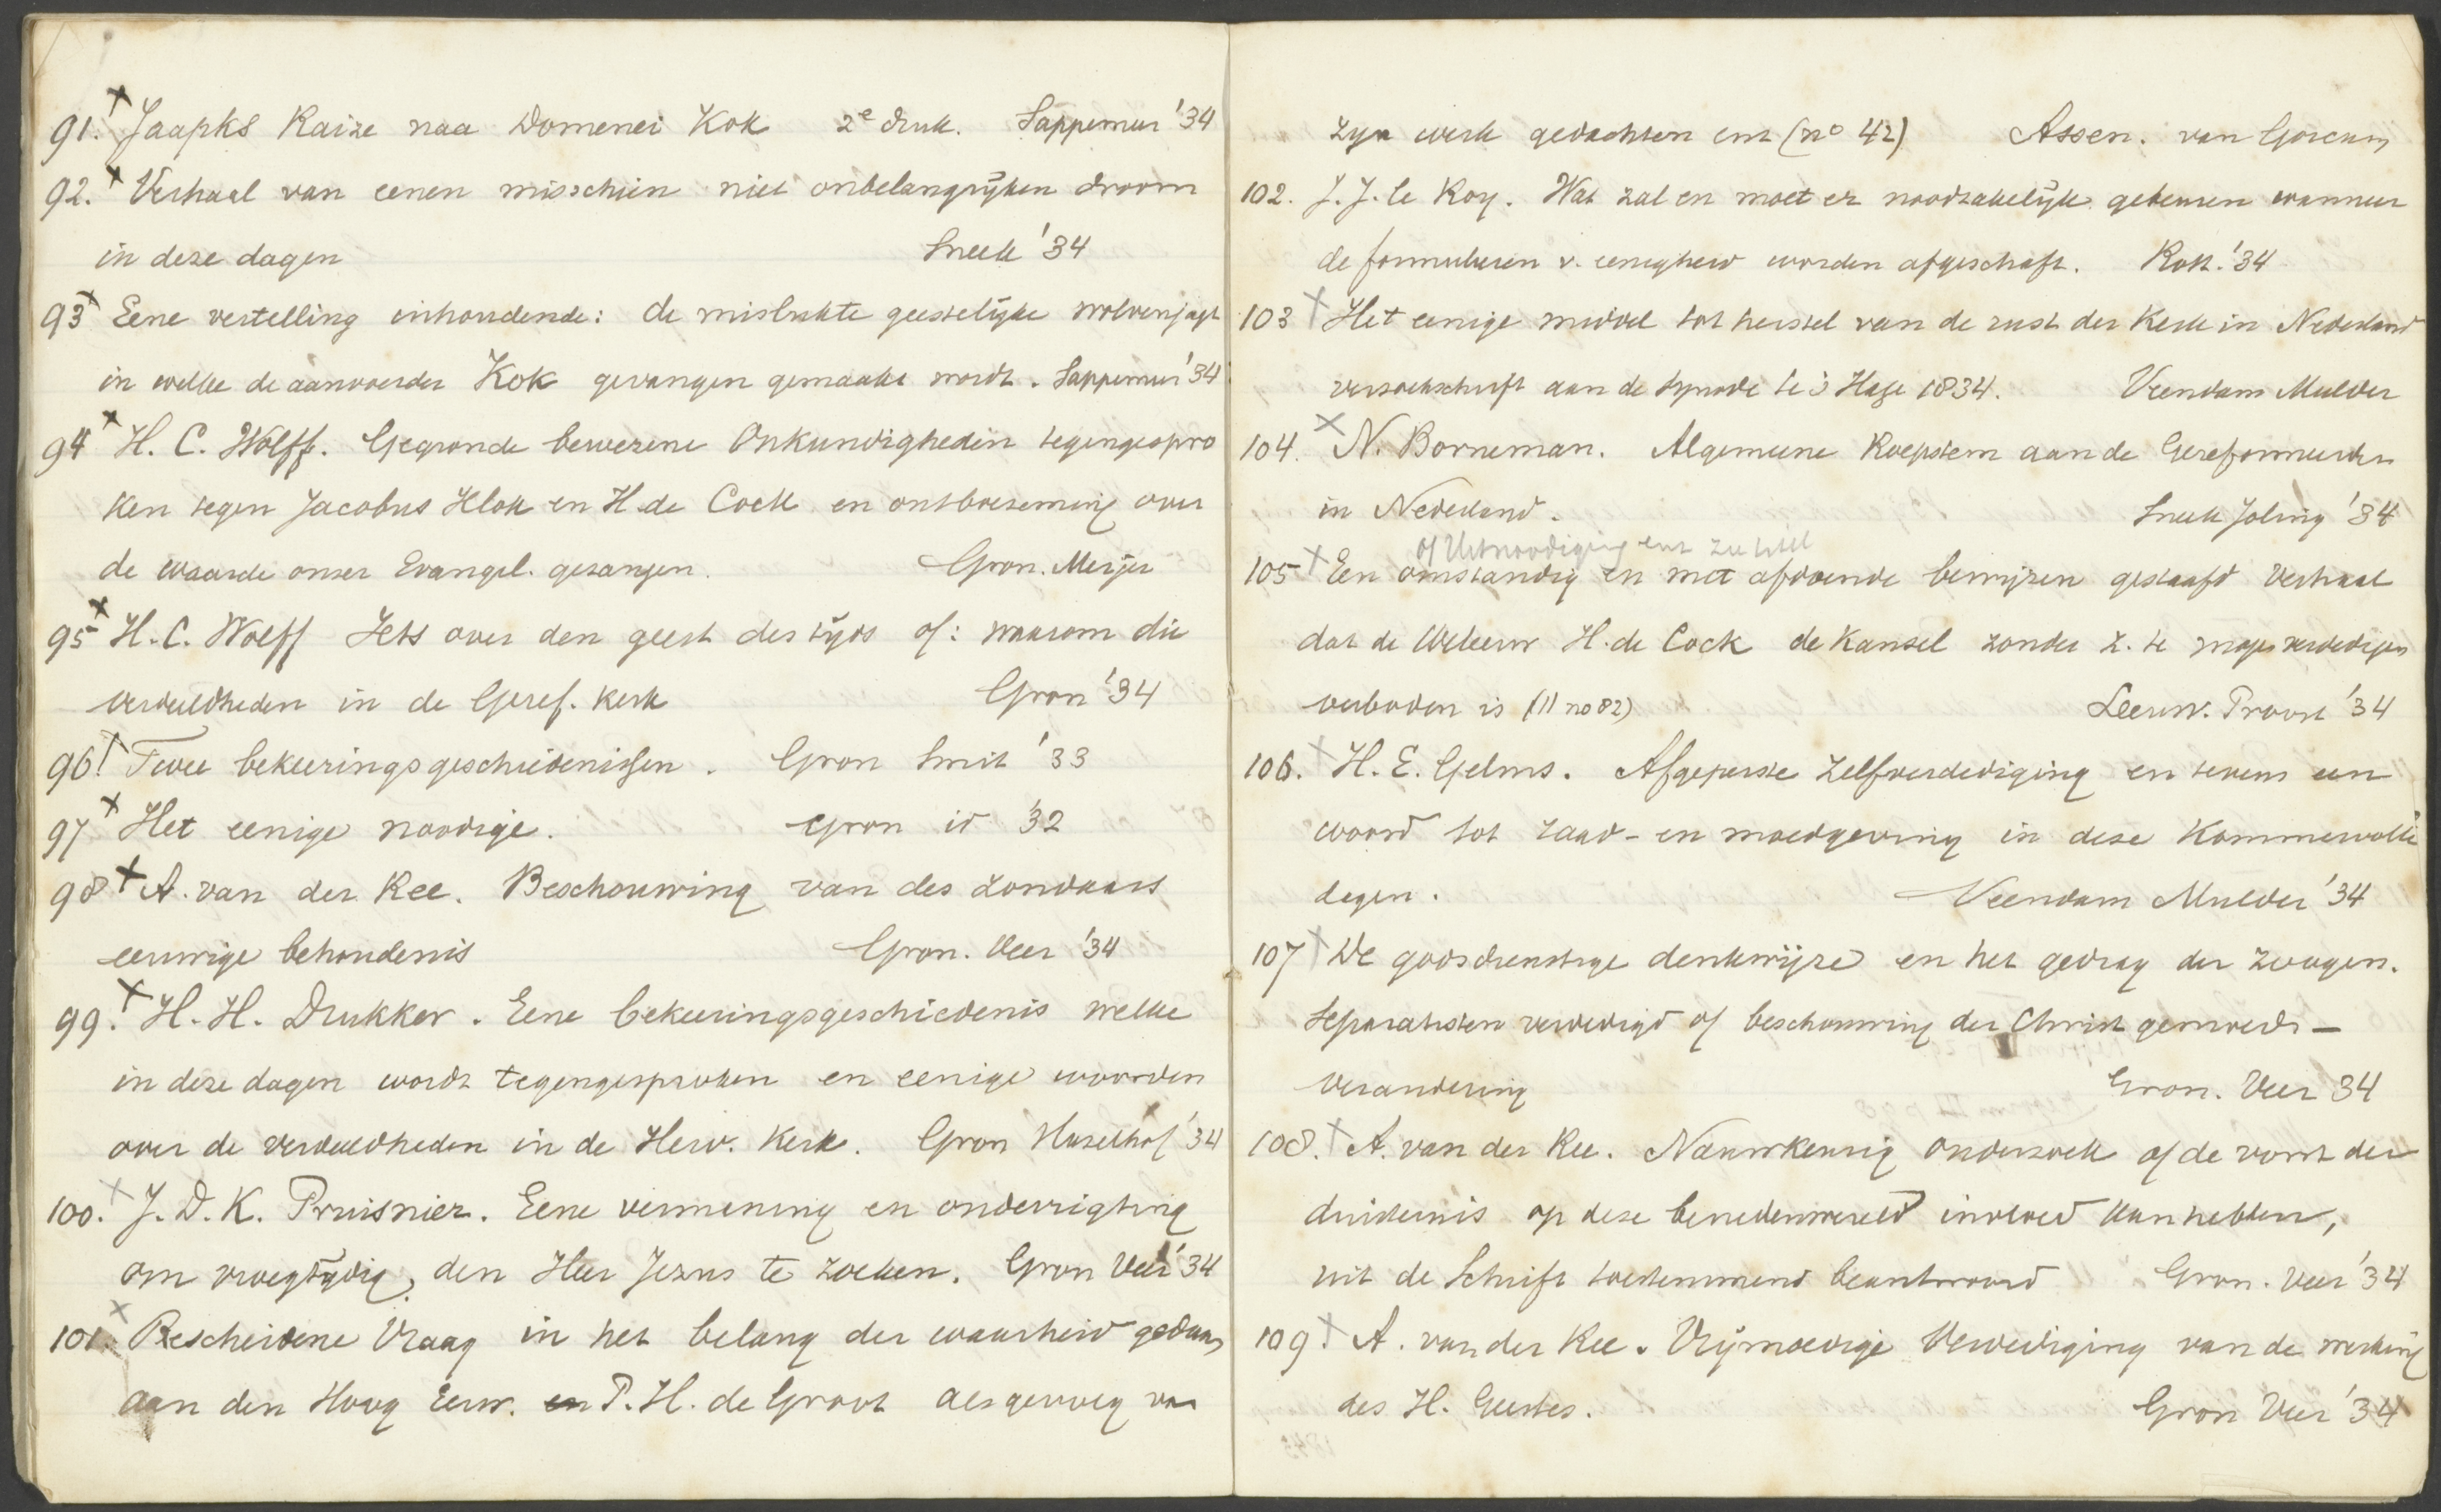 91. x Jaapks Raize naa Domenei Kok 2e druk. Sappemeer '34
92. x Verhaal van eenen misschien niet onbelangrijken droom
in deze dagen Sneek '34
93 x Eene vertelling inhoudende: de mislukte geestelijke wolvenjagt
in welke de aanvoerder Kok gevangen gemaakt wordt. Sappemeer '34
94 x H. C. Wolff. Gegronde bewezene Onkundigheden tegengespro
ken tegen Jacobus Klok en H. de Cock en ontboezeming over
de waarde onzer Evangel. gezangen. Gron. Meijer
95 x H. C. Wolff Iets over den geest des tijds of: waarom die
verdeeldheden in de Geref. Kerk Gron '34
96. x Twee bekeeringsgeschiedenissen. Gron Smit '33
97 x Het eenige noodige. Gron id '32
98 x A. van der Ree. Beschouwing van des zondaars
eeuwige behoudenis Gron. Veer '34
99. x H. H. Drukker. Eene bekeeringsgeschiedenis welke
in deze dagen wordt tegengesproken en eenige woorden
over de verdeeldheden in de Herv. Kerk. Gron Hazelhof '34
100. x J. D. K. Pruisnier. Eene vermaning en onderrigting
om vroegtijdig den Heer Jezus te zoeken. Gron Veer '34
101. x Bescheidene Vraag in het belang der waarheid gedaan
aan den Hoog Eerw. P. H. de Groot als gevolg van
zijn werk gedachten enz (no 42) Assen. van Gorcum
102. J. J. le Roy. Wat zal en moet er noodzakelijk gebeuren wanneer
de formulieren v. eenigheid worden afgeschaft. Rott. '34
103 x Het eenige middel tot herstel van de rust der Kerk in Nederland
verzoekschrift aan de Synode te 's Hage 1834. Veendam Mulder
104. x N. Borneman. Algemeene Roepstem aan de Gereformeerden
in Nederland. Sneek Joling '34
of Uitnoodiging enz zie titel
105 x Een omstandig en met afdoende bewijzen gestaafd Verhaal
dat de WelEerw H. de Cock de Kansel zonder z. te mogen verdedigen
verboden is (II no 82) Leeuw. Proost '34
106. x H. E. Gelms. Afgeperste zelfverdediging en tevens een
woord tot raad- en moedgeving in deze kommervolle
dagen. Veendam Mulder '34
107 x De godsdienstige denkwijze en het gedrag der zoogen.
Separatisten verdedigd of beschouwing der Christ gemoeds-
verandering Gron. Veer 34
108. x A. van der Ree. Naauwkeurig onderzoek of de vorst der
duisternis op deze benedenwereld invloed kan hebben,
uit de Schrift toestemmend beantwoord Gron. Veer '34
109. x A. van der Ree. Vrijmoedige Verdediging van de werking
des H. Geestes. Gron Veer '34